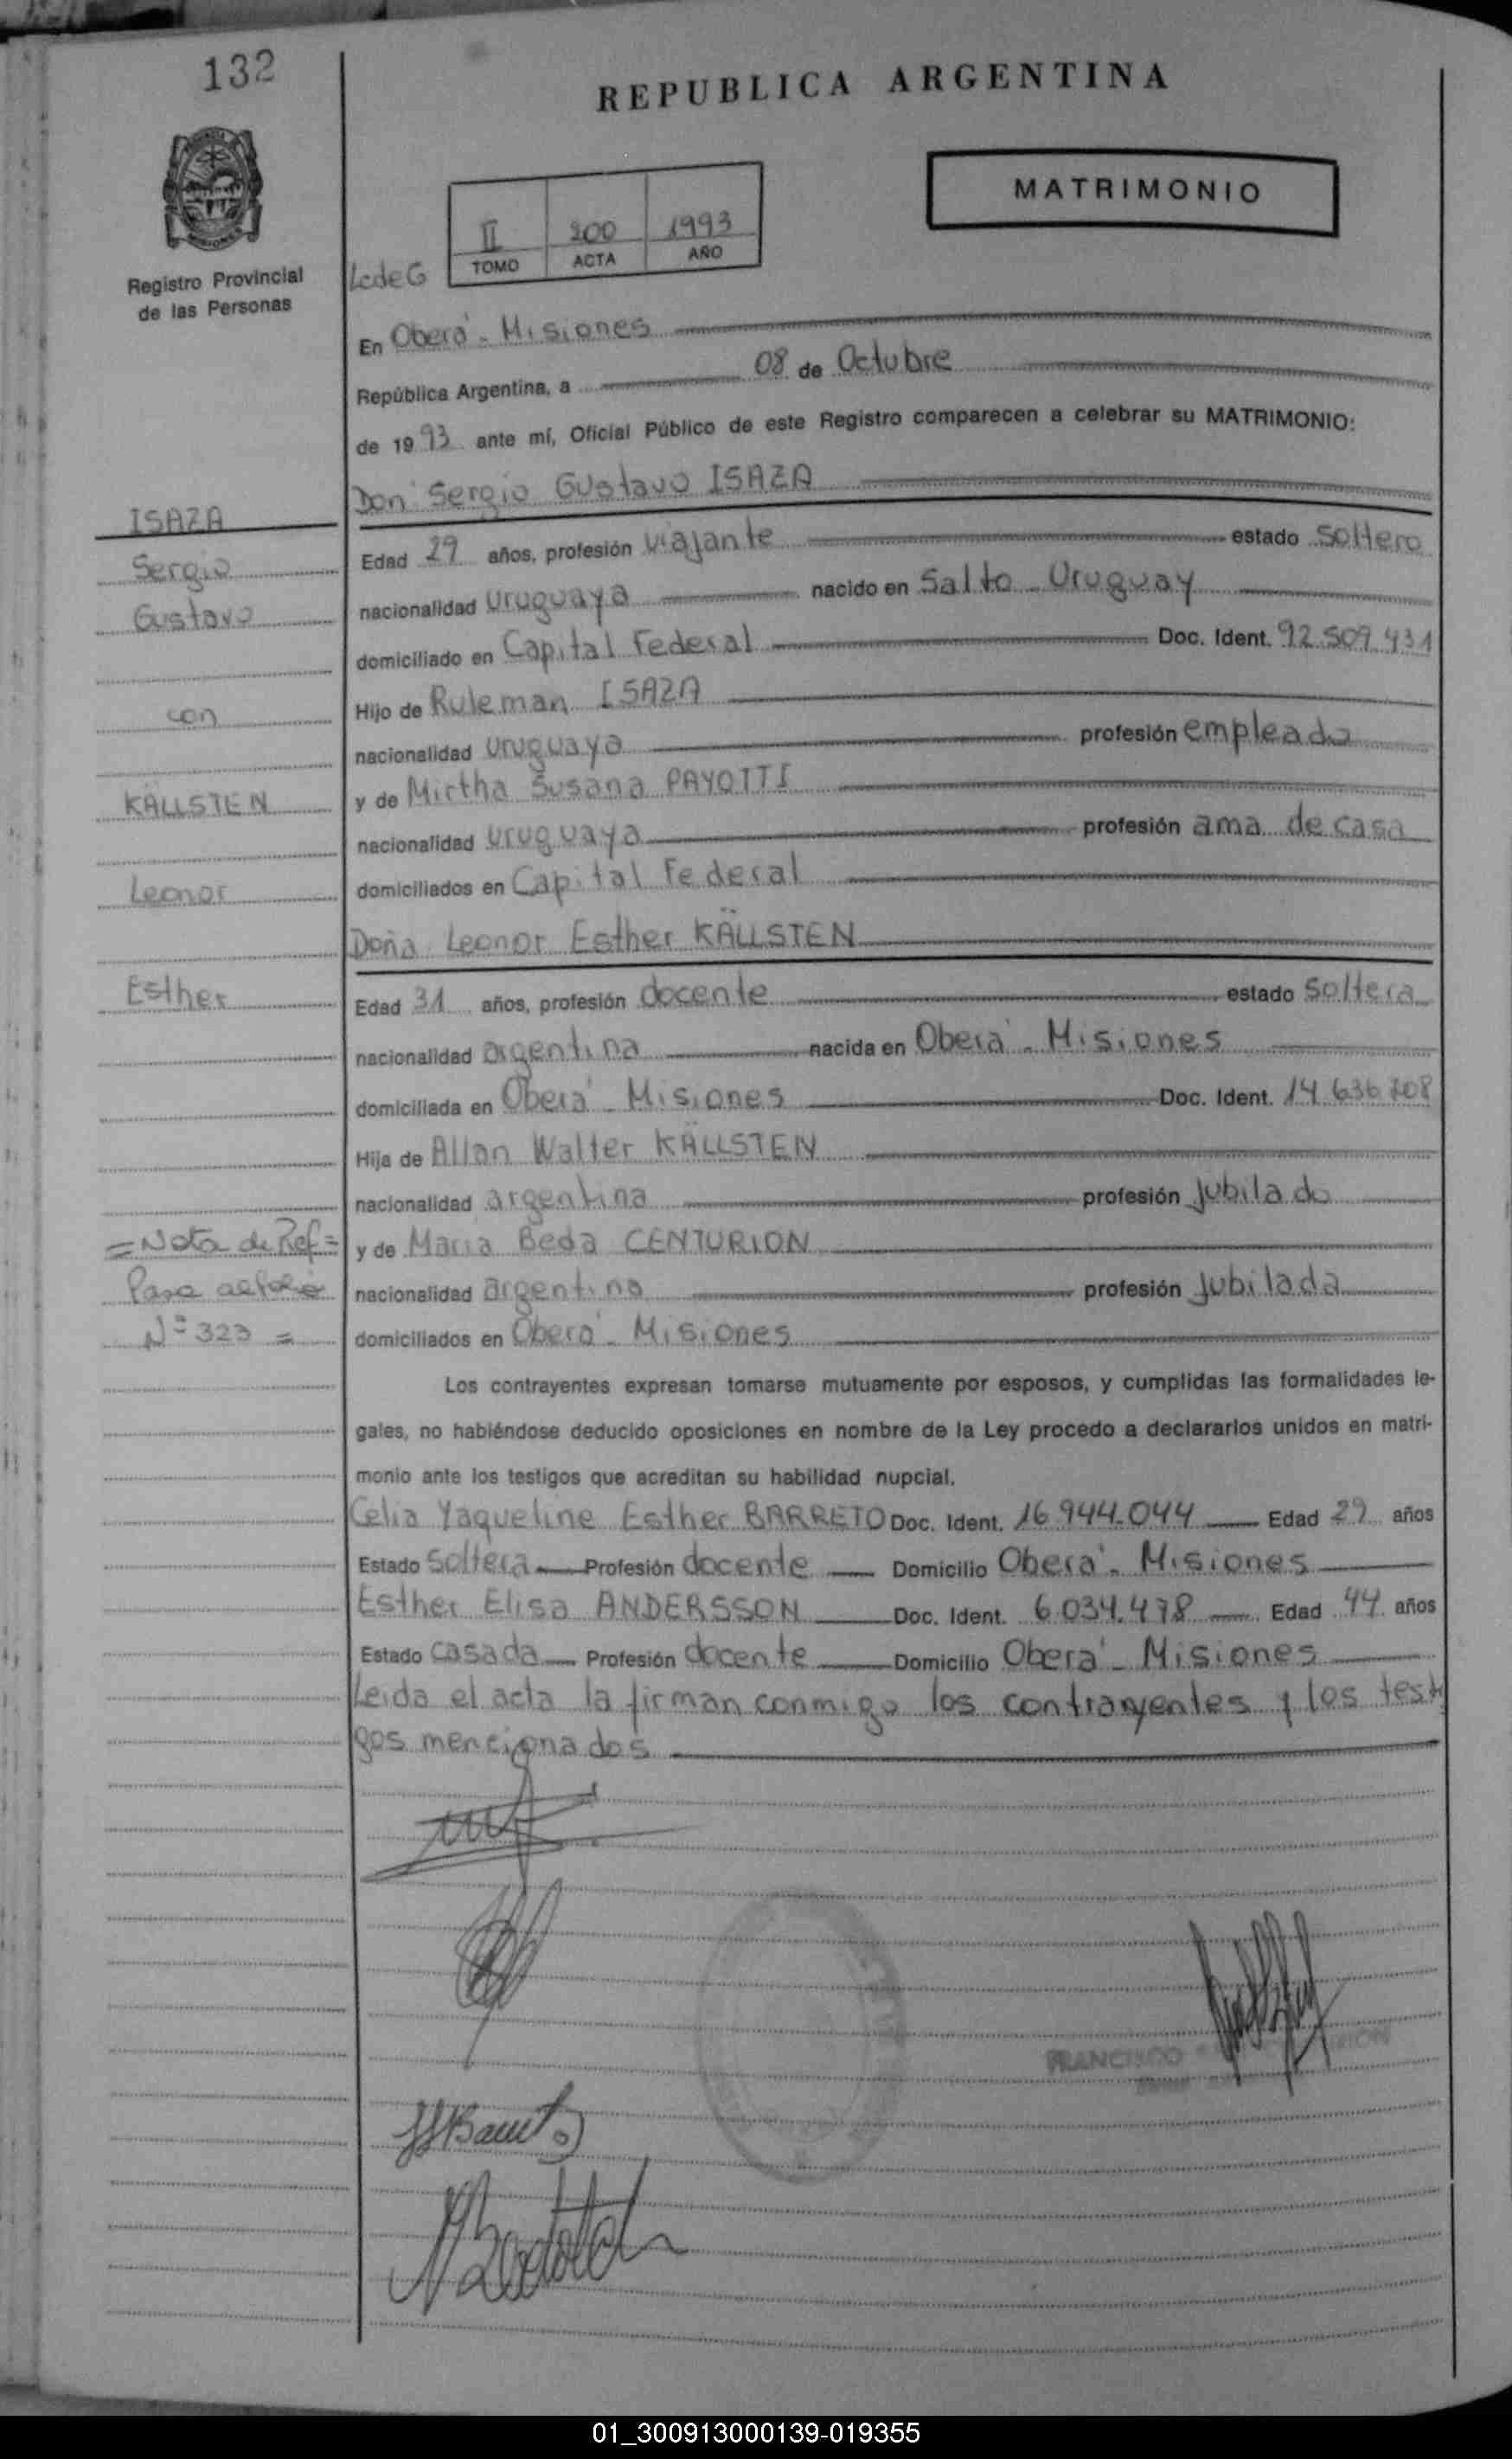 132
REPUBLICA ARGENTINA
MATRIMONIO
II 200 1993
TOMO ACTA AÑO
Registro Provincial
de las Personas
LcdeG
En Oberá - Misiones
República Argentina, a 08 de Octubre
de 1993 ante mí, Oficial Público de este Registro comparecen a celebrar su MATRIMONIO:
Don Sergio Gustavo ISAZA
ISAZA
Edad 29 años, profesión viajante estado soltero
Sergio
nacionalidad uruguaya nacido en Salto - Uruguay
Gustavo
domiciliado en Capital Federal Doc. Ident. 92.509.431
Hijo de Ruleman ISAZA
con
nacionalidad uruguaya profesión empleado
y de Mirtha Susana PAYOTTI
KÄLLSTEN
nacionalidad uruguaya profesión ama de casa
domiciliados en Capital Federal
Leonor
Doña Leonor Esther KÄLLSTEN
Esther
Edad 31 años, profesión docente estado soltera
nacionalidad argentina nacida en Oberá - Misiones
domiciliada en Oberá - Misiones Doc. Ident. 14.636.208
Hija de Allan Walter KÄLLSTEN
nacionalidad argentina profesión jubilado
= Nota de Ref =
y de Maria Beda CENTURION
Pasa al folio
nacionalidad argentina profesión jubilada
Nº 323 =
domiciliados en Oberá - Misiones
Los contrayentes expresan tomarse mutuamente por esposos, y cumplidas las formalidades le-
gales, no habiéndose deducido oposiciones en nombre de la Ley procedo a declararlos unidos en matri-
monio ante los testigos que acreditan su habilidad nupcial.
Celia Yaqueline Esther BARRETO Doc. Ident. 16.944.044 Edad 29 años
Estado soltera Profesión docente Domicilio Oberá - Misiones
Esther Elisa ANDERSSON Doc. Ident. 6.034.478 Edad 44 años
Estado casada Profesión docente Domicilio Oberá - Misiones
Leida el acta la firman conmigo los contrayentes y los testi
gos mencionados
FRANCISCO
01_300913000139-019355